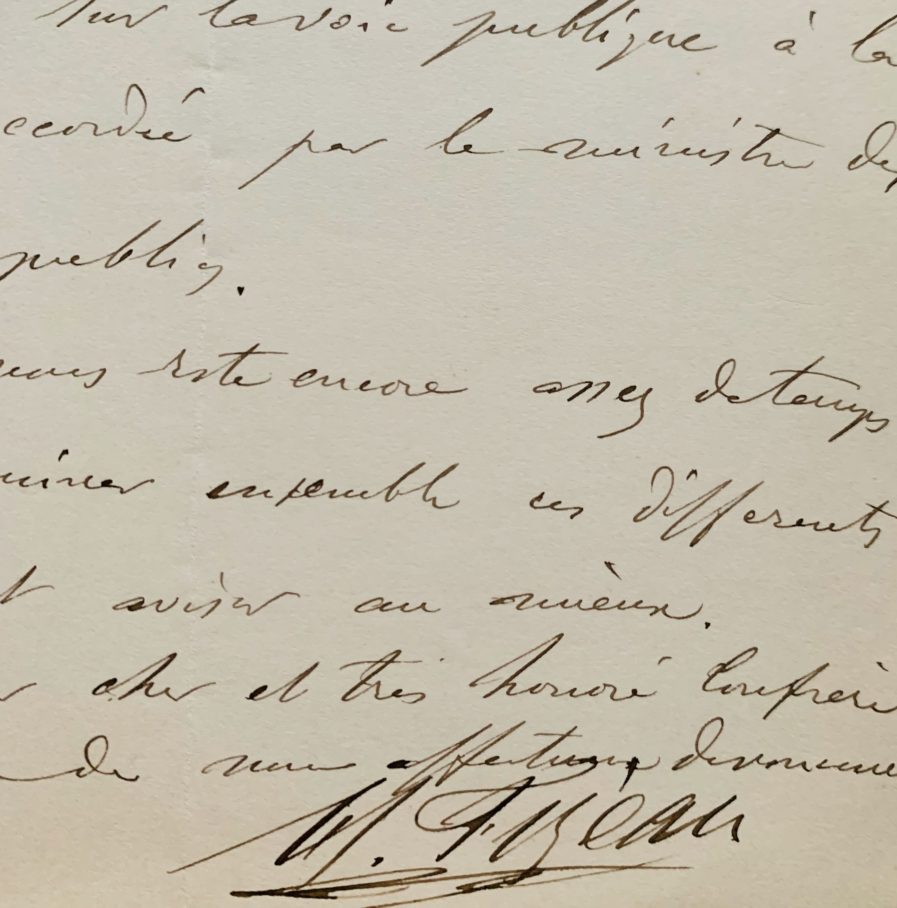 sur la voie publique à la
ccordée par le ministre des
publics.
nous reste encore assez de temps
miner ensemble ces différents
t aviser au mieux.
r cher et très honoré Confrère
de mon affectueux dévouement
H. Fizeau